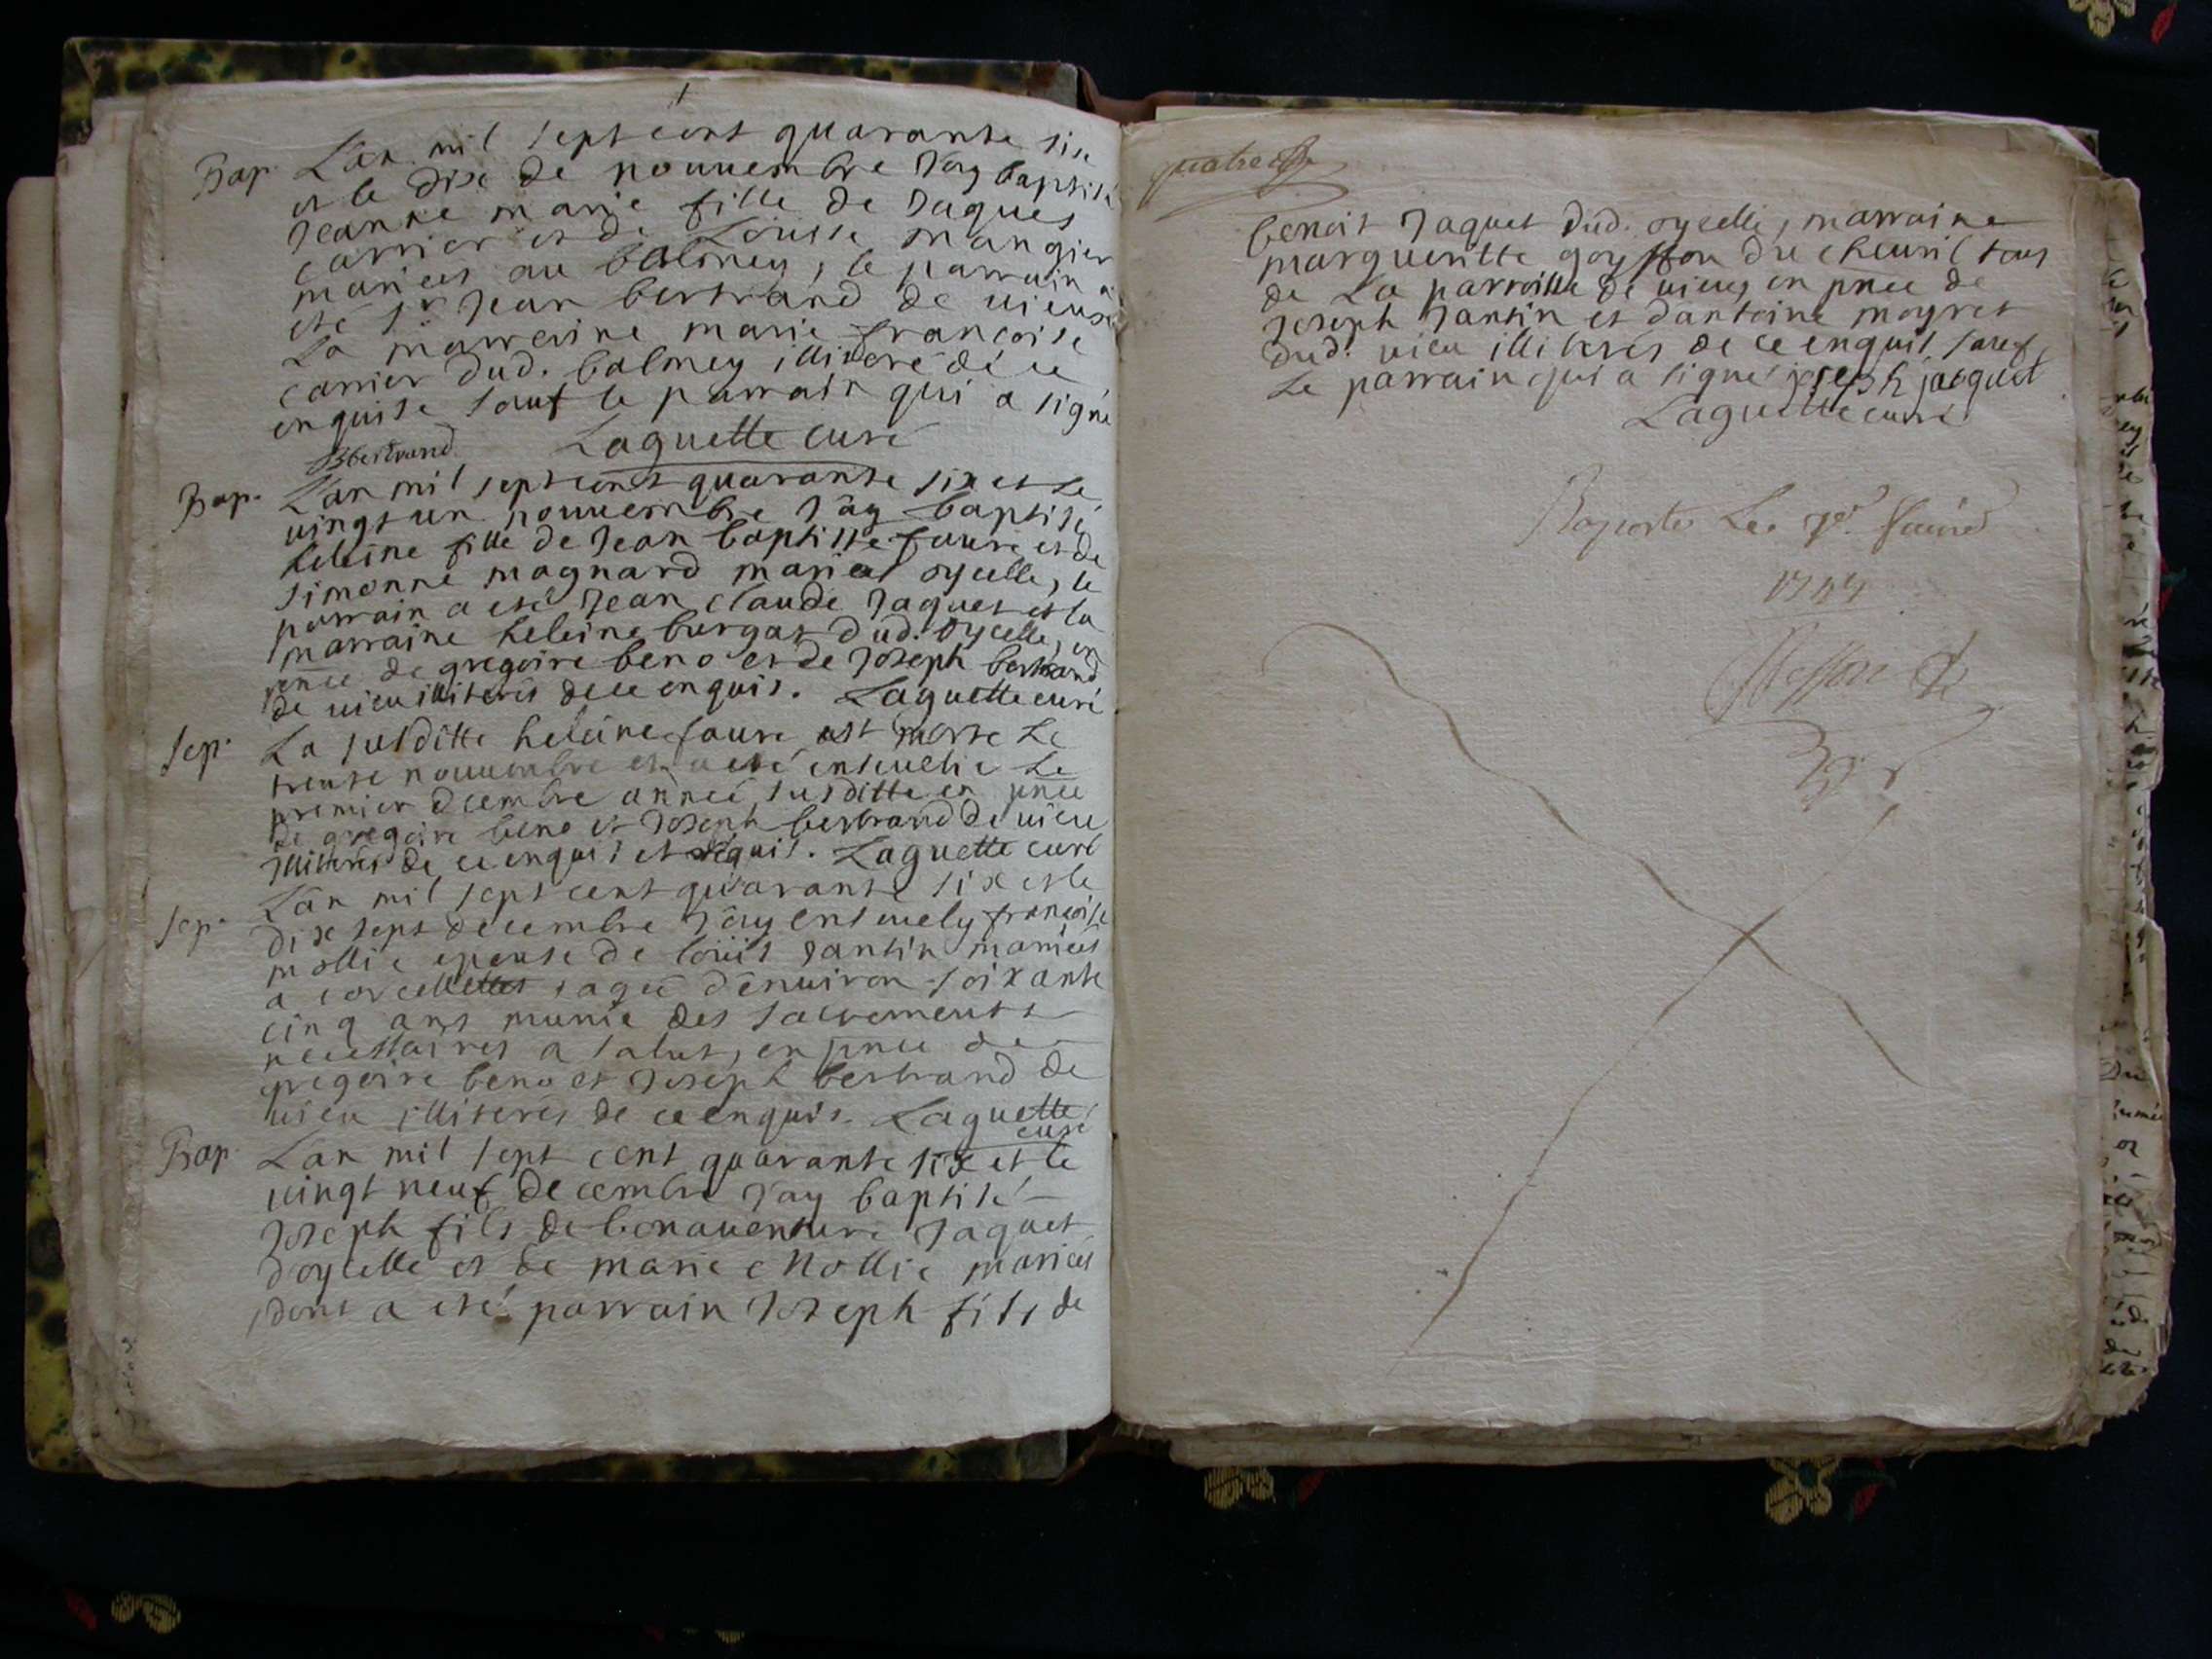 Bap. L'an mil sept cent quarante six
et le dix de nouuembre J'ay baptisé
Jeanne marie fille de Jaques
carrier et de Louise mangier
mariés au balmey, le parrain a
eté sr Jean bertrand de uieux
La marraine marie françoise
carrier dud. balmey illiteré de ce
enquise sauf le parrain qui a signé
Bertrand Laguette curé
Bap. L'an mil sept cent quarante six et le
uingt un nouuembre J'ay baptisé
heleine fille de Jean baptiste faure et de
simonne magnard mariés oyselle, le
parrain a eté Jean claude Jaquet et la
marraine heleine burgat dud. oyselle, en
pnce de gregoire beno et de Joseph bertrand
de uieu illiterés de ce enquis. Laguette curé
Sep. La susditte heleine faure est morte Le
trente nouuembre et a eté enseuelie Le
premier decembre anneé susditte en pnce
de gregoire beno et Joseph bertrand de uieu
illiterés de ce enquis et requis. Laguette curé
Sep. L'an mil sept cent quarante six et le
dix sept decembre J'ay enseuely françoise
mollie epouse de loüis Jantin mariés
a corcelles, ageé d'enuiron soixante
cinq ans munie des sacrements
necessaires a salut, en pnce de
gregoire beno et Joseph bertrand de
uieu illiterés de ce enquis. Laguette
curé
Bap. L'an mil sept cent quarante six et le
uingt neuf decembre J'ay baptisé
Joseph fils de bonauenture Jaquet
d'oyselle et de marie Mollie mariés
dont a eté parrain Joseph fils de
quatre
benoit Jaquet dud. oyselle, marraine
margueritte goyffon du cheuril tous
de La parroisse de uieu, en pnce de
Joseph Jantin et d'antoine moyret
dud. uieu illiterés de ce enquis, sauf
Le parrain qui a signé joseph jacquet
Laguette curé
Raporté Le